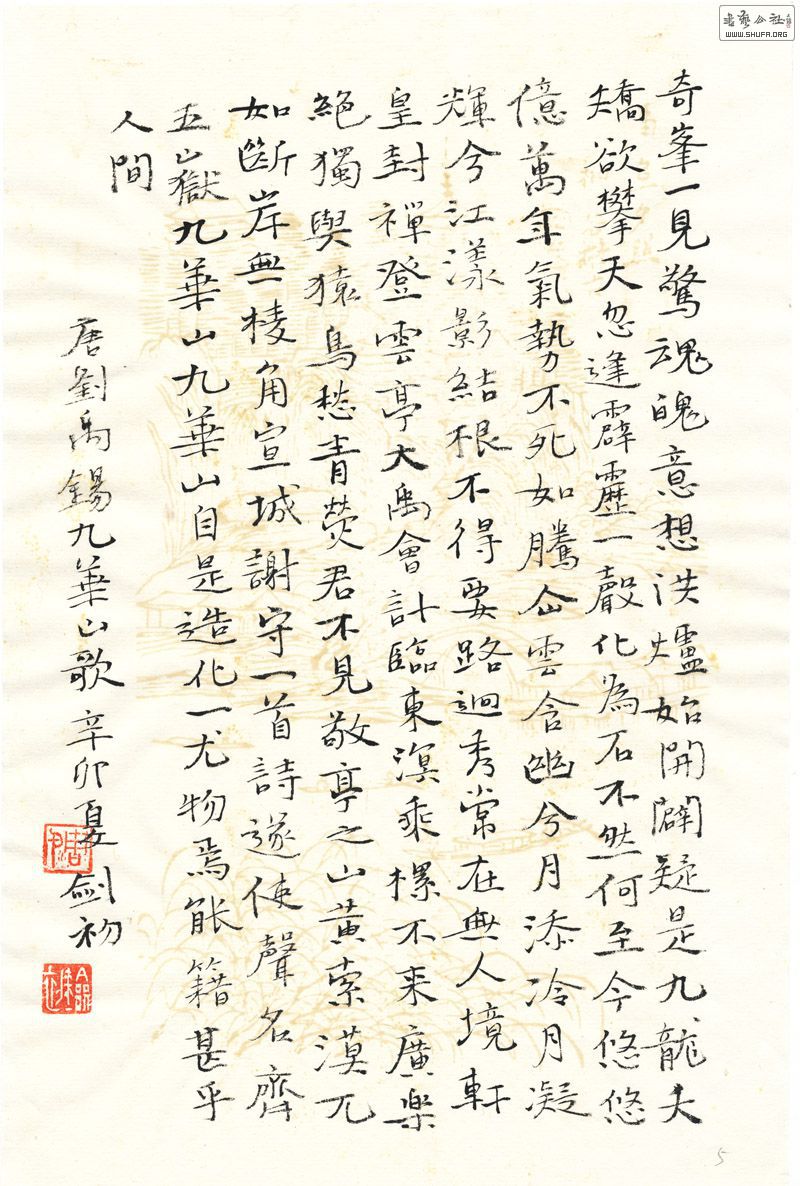 奇峯一見驚魂魄意想洪爐始開闢疑是九龍夭
矯欲攀天忽逢霹靂一聲化為石不然何至今悠悠
億萬年氣勢不死如騰仚雲含幽兮月添冷月凝
輝兮江漾影結根不得要路迥秀常在無人境軒
皇封禪登雲亭大禹會計臨東溟乘樏不来廣樂
絕獨與猿鳥愁青熒君不見敬亭之山黃索漠兀
如斷岸無棱角宣城謝守一首詩遂使聲名齊
五山嶽九華山九華山自是造化一尤物焉能籍甚乎
人間
唐劉禹錫九華山歌 辛卯夏 劍初
書法公社
WWW.SHUFA.ORG
5